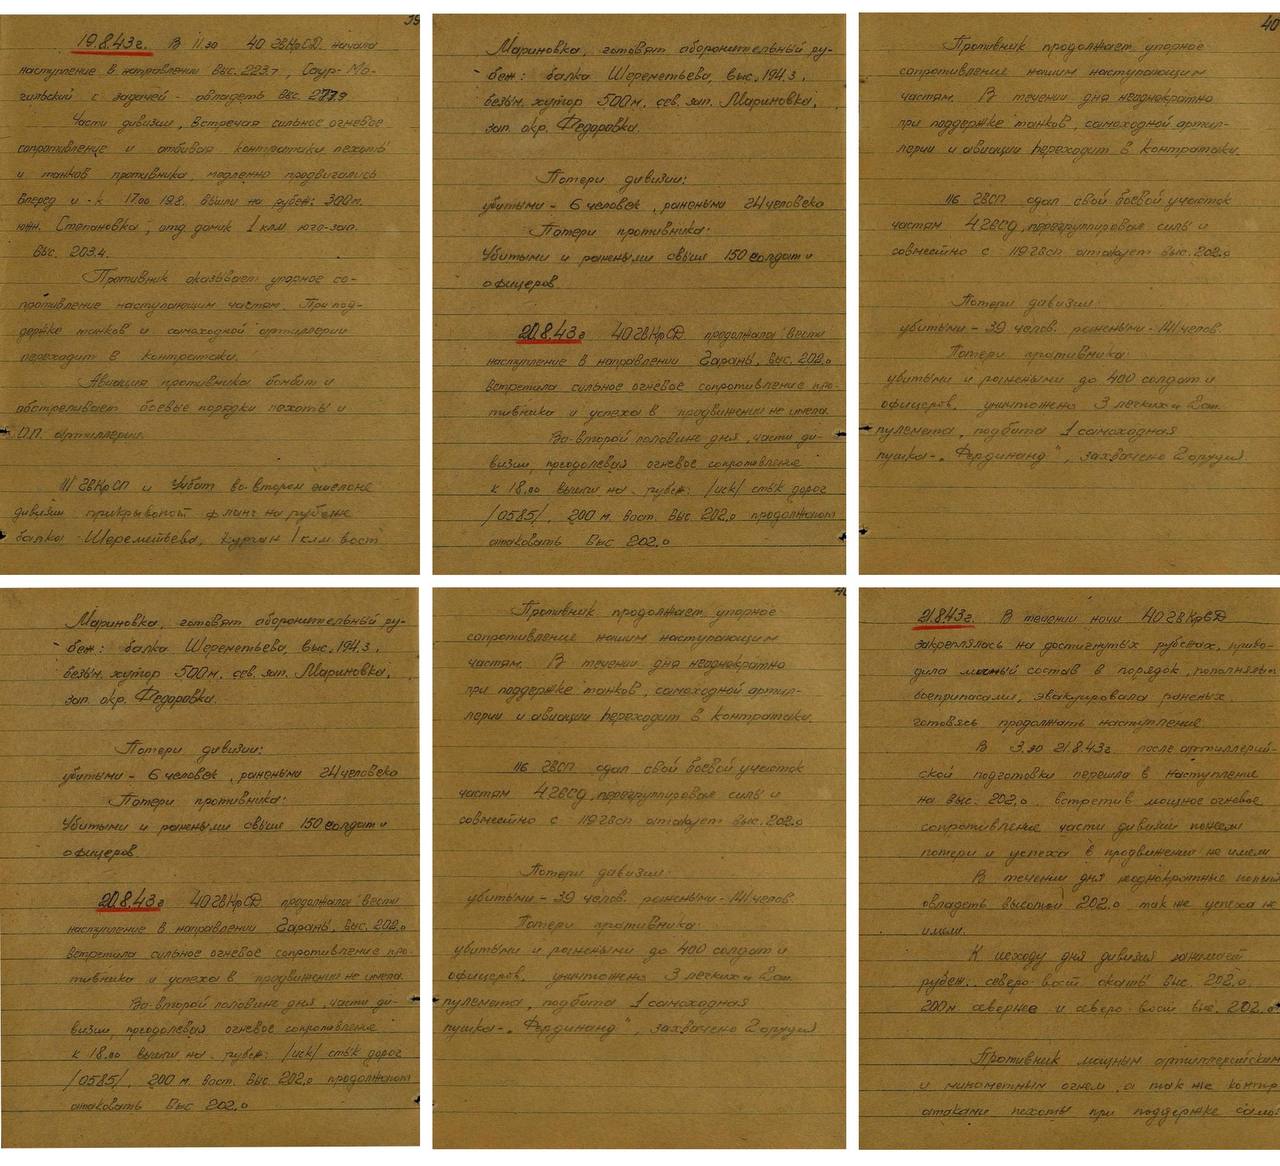 39
19.8.43г. В 11.30 40 ГвКрСД начала
наступление в направлении Выс. 223.7, Саур-Мо-
гильский с задачей - овладеть выс. 277.9
Части дивизии, встречая сильное огневое
сопротивление и отбивая контратаки пехоты
и танков противника, медленно продвигались
вперед и - к 17.00 19.8. вышли на рубеж: 300 м.
южн. Степановка; отд домик 1 клм юго-зап.
выс. 203.4.
Противник оказывает упорное со-
противление наступающим частям. При под-
держке танков и самоходной артиллерии
переходит в контратаки.
Авиация противника бомбит и
обстреливает боевые порядки пехоты и
О.П. артиллерии.
111 ГвКрСП и Учбат во втором эшелоне
дивизии прикрывают фланг на рубеже
балка Шереметьева, Курган 1 клм вост
Мариновка, готовят оборонительный ру-
беж: балка Шереметьева, выс. 194.3,
безым. хутор 500 м. сев. зап. Мариновка,
зап. окр. Федоровка.
Потери дивизии:
убитыми - 6 человек, ранеными 24 человека
Потери противника:
Убитыми и ранеными свыше 150 солдат и
офицеров.
20.8.43г 40 ГвКрСД продолжала вести
наступление в направлении Гараны, выс. 202.0
встретила сильное огневое сопротивление про-
тивника и успеха в продвижении не имела.
Во-второй половине дня, части ди-
визии, преодолевая огневое сопротивление
к 18.00 вышли на рубеж: /иск/ стык дорог
/0585/, 200 м. вост. выс. 202.0 продолжают
атаковать Выс 202.0
40
Противник продолжает упорное
сопротивление нашим наступающим
частям. В течении дня неоднократно
при поддержке танков, самоходной артил-
лерии и авиации переходит в контратаки.
116 ГВСП сдал свой боевой участок
частям 4 ГВСД, перегруппировав силы и
совместно с 119 ГВсп атакует выс. 202.0
Потери дивизии:
убитыми - 39 челов. ранеными - 141 челов.
Потери противника:
убитыми и ранеными до 400 солдат и
офицеров, уничтожено 3 легких и 2 ст.
пулемета, подбита 1 самоходная
пушка - „Фердинанд", захвачено 2 орудия
Мариновка, готовят оборонительный ру-
беж: балка Шереметьева, выс. 194.3,
безым. хутор 500 м. сев. зап. Мариновка,
зап. окр. Федоровка.
Потери дивизии:
убитыми - 6 человек, ранеными 24 человека
Потери противника:
Убитыми и ранеными свыше 150 солдат и
офицеров.
20.8.43г 40 ГвКрСД продолжала вести
наступление в направлении Гараны, выс. 202.0
встретила сильное огневое сопротивление про-
тивника и успеха в продвижении не имела.
Во-второй половине дня, части ди-
визии, преодолевая огневое сопротивление
к 18.00 вышли на рубеж: /иск/ стык дорог
/0585/, 200 м. вост. выс. 202.0 продолжают
атаковать Выс 202.0
Противник продолжает упорное
сопротивление нашим наступающим
частям. В течении дня неоднократно
при поддержке танков, самоходной артил-
лерии и авиации переходит в контратаки.
116 ГВСП сдал свой боевой участок
частям 4 ГВСД, перегруппировав силы и
совместно с 119 ГВсп атакует выс. 202.0
Потери дивизии:
убитыми - 39 челов. ранеными - 141 челов.
Потери противника:
убитыми и ранеными до 400 солдат и
офицеров, уничтожено 3 легких и 2 ст.
пулемета, подбита 1 самоходная
пушка - „Фердинанд", захвачено 2 орудия
21.8.43г. В течении ночи 40 ГвКрСД
закреплялась на достигнутых рубежах, приво-
дила личный состав в порядок, пополнялась
боеприпасами, эвакуировала раненых
готовясь продолжать наступление
В 3.30 21.8.43г. после артиллерий-
ской подготовки перешла в наступление
на выс. 202.0 встретив мощное огневое
сопротивление части дивизии понесли
потери и успеха в продвижении не имели
В течении дня неоднократные
овладеть высотой 202.0 так же успеха не
имели.
К исходу дня дивизия занимает
рубеж: северо-вост скаты выс. 202.0
200 м севернее и северо вост выс. 202.0
Противник мощным артиллерийским
и минометным огнем, а так же контр
атаками пехоты при поддержке само-